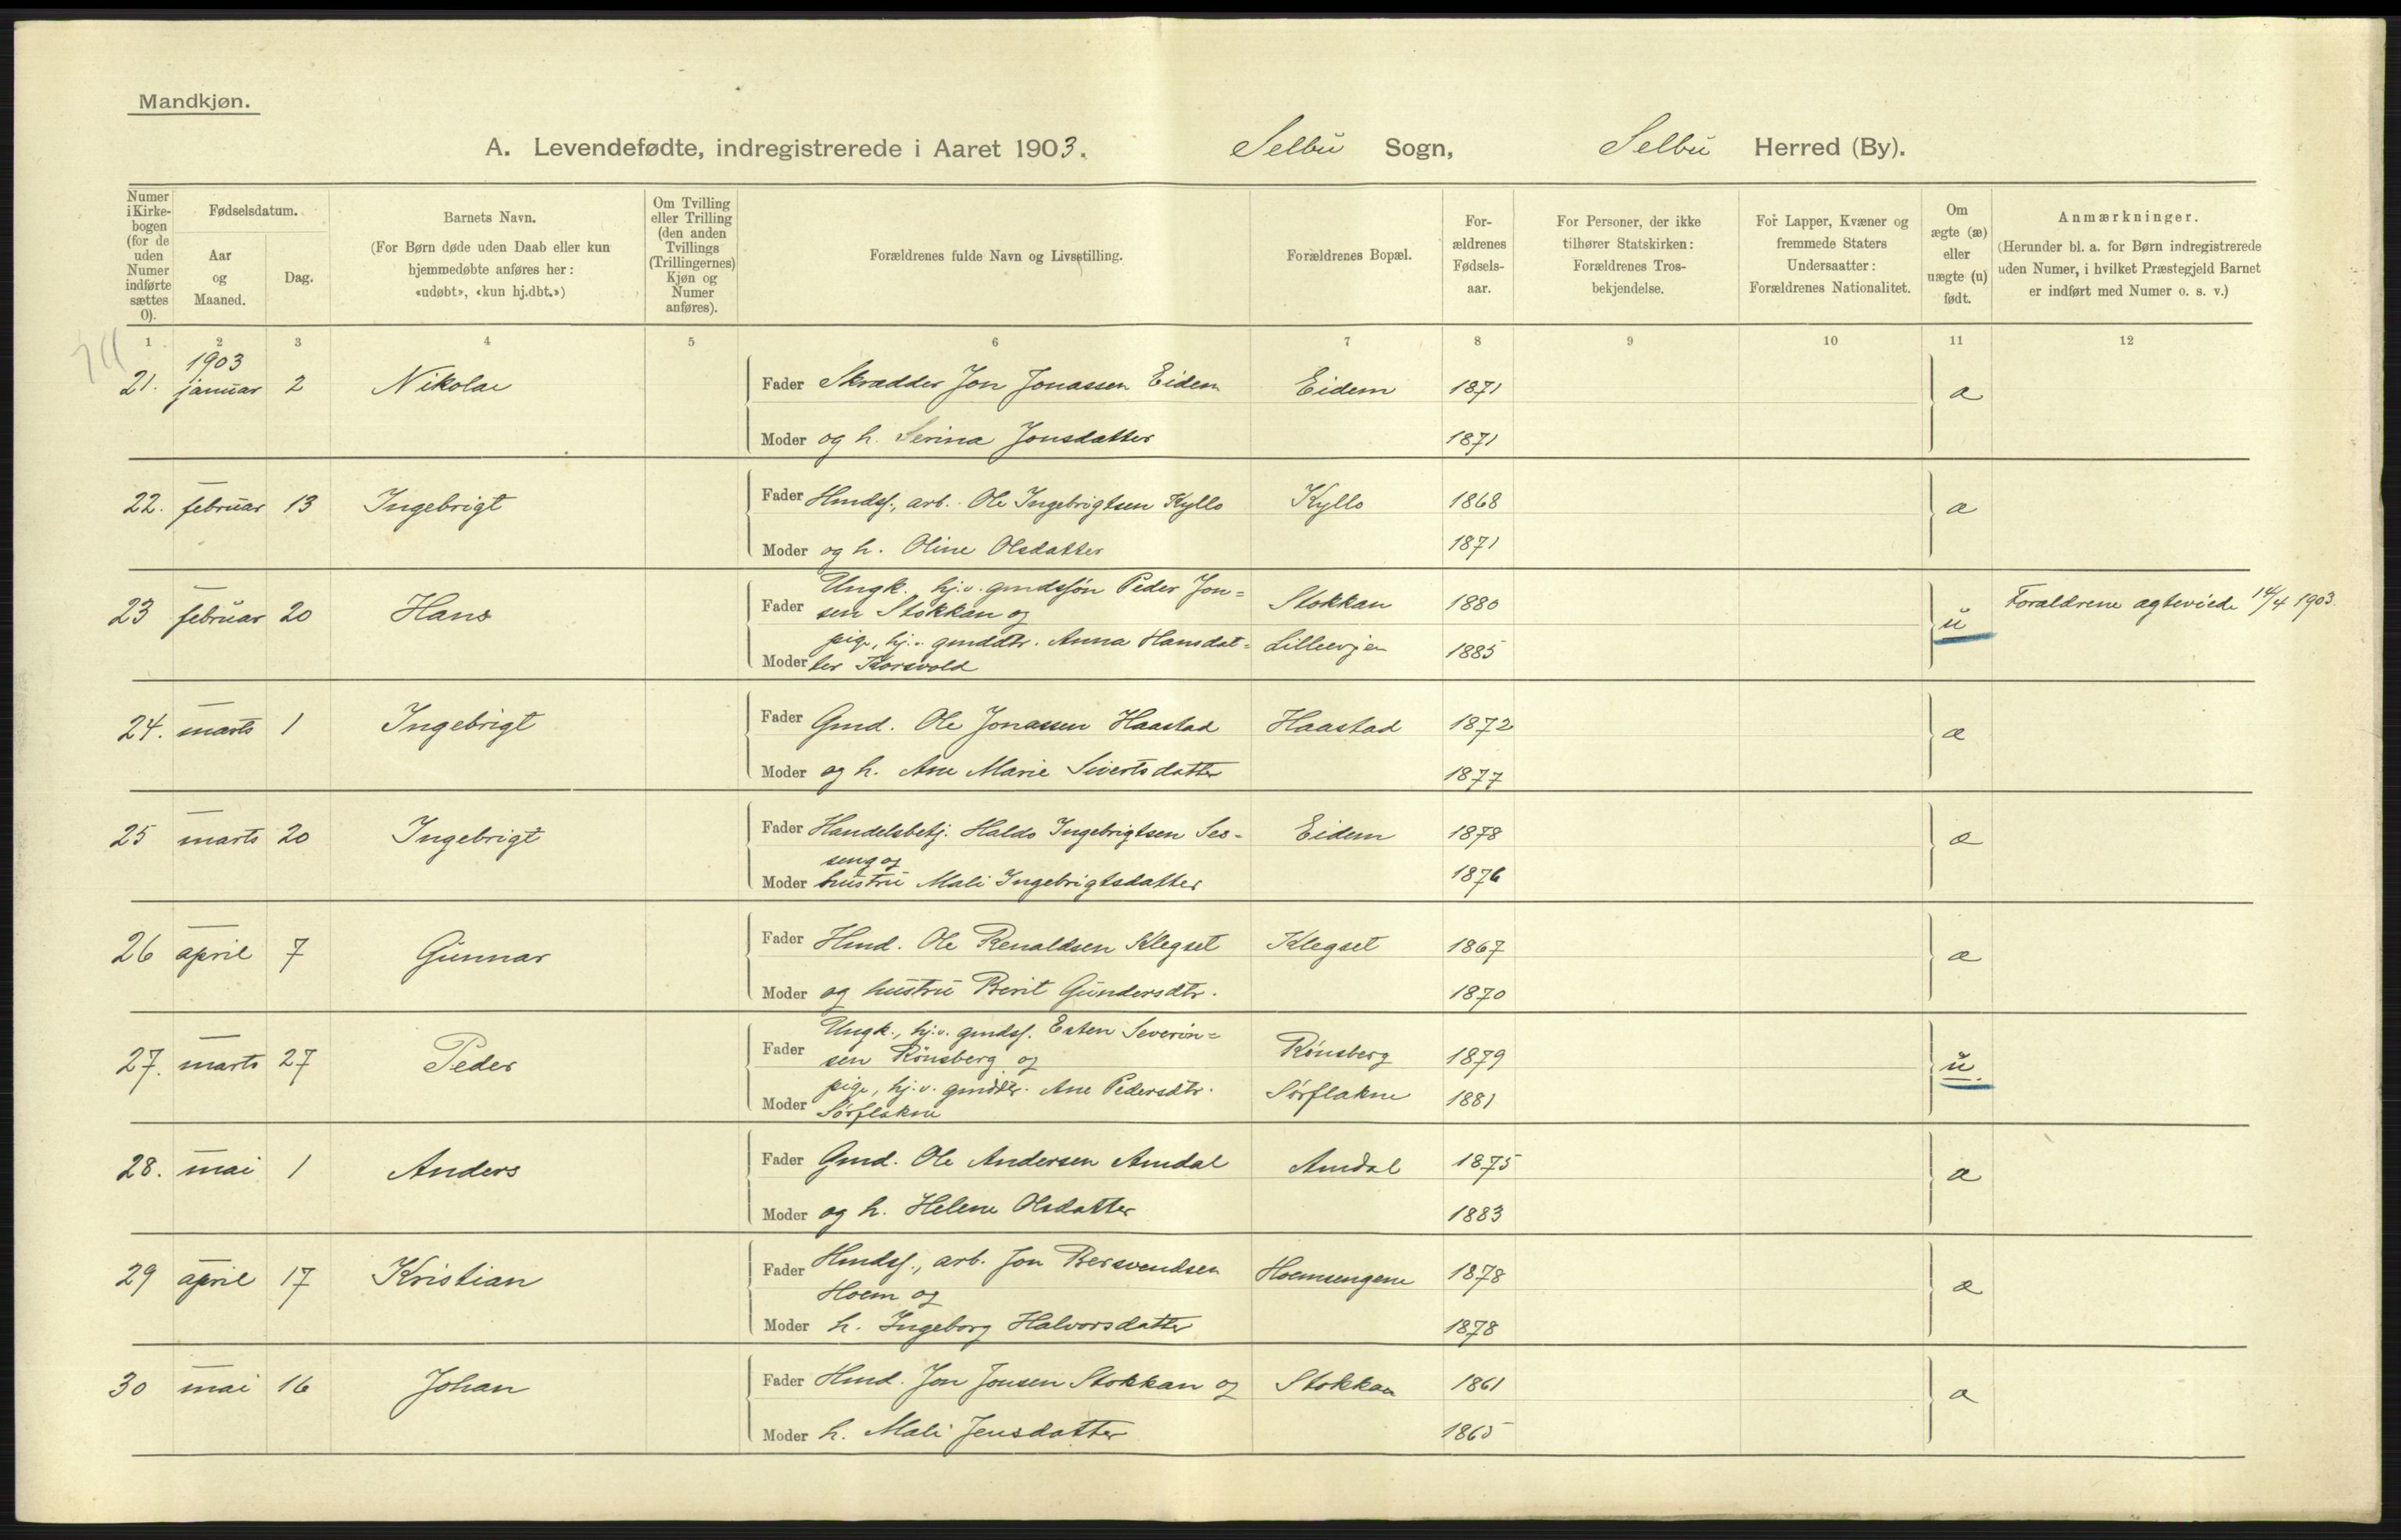 Mandkjøn.
A. Levendefødte, indregistrerede i Aaret 1903. Selbu Sogn, Selbu Herred (By).
Numer i Kirkebogen (for de uden Numer indførte sættes 0).
Fødselsdatum.
Aar og Maaned.
Dag.
Barnets Navn.
(For Børn døde uden Daab eller kun hjemmedøbte anføres her: «udøbt», «kun hj.dbt.»)
Om Tvilling eller Trilling (den anden Tvillings (Trillingernes) Kjøn og Numer anføres).
Forældrenes fulde Navn og Livsstilling.
Forældrenes Bopæl.
Forældrenes Fødselsaar.
For Personer, der ikke tilhører Statskirken: Forældrenes Trosbekjendelse.
For Lapper, Kvæner og fremmede Staters Undersaatter: Forældrenes Nationalitet.
Om ægte (æ) eller uægte (u) født.
Anmærkninger.
(Herunder bl. a. for Børn indregistrerede uden Numer, i hvilket Præstegjeld Barnet er indført med Numer o. s. v.)
1 2 3 4 5 6 7 8 9 10 11 12
1903
21. januar 2 Nikolai Fader Skrædder Jon Jonassen Eidem Eidem 1871 æ
Moder og h. Serina Jonsdatter 1871
22. — februar 13 Ingebrigt Fader Hmdsf., arb. Ole Ingebrigtsen Kyllo Kyllo 1868 æ
Moder og h. Oline Olsdatter 1871
23 — februar 20 Hans Fader Ungk. hj.v. gmdssøn Peder Jon=
sen Stokkan og Stokkan 1880 u Forældrene ægteviede 14/4 1903.
Moder pige, hj.v. gmddtr. Anna Hansdat=
ter Korsvold Lilleevjen 1885
24. — marts 1 Ingebrigt Fader Gmd. Ole Jonassen Haastad Haastad 1872 æ
Moder og h. Ane Marie Sivertsdatter 1877
25 — marts 20 Ingebrigt Fader Handelsbetj. Haldo Ingebrigtsen Ses=
seng og Eidem 1878 æ
Moder hustru Mali Ingebrigtsdatter 1876
26 — april 7 Gunnar Fader Hmd. Ole Renaldsen Klegset Klegset 1867 æ
Moder og hustru Berit Gundersdtr. 1870
27. — marts 27 Peder Fader Ungk., hj.v. gmdsf. Esten Severin=
sen Rönsberg og Rönsberg 1879 u.
Moder pige, hj.v. gmddtr. Ane Pedersdtr.
Sörflakne Sörflakne 1881
28. — mai 1 Anders Fader Gmd. Ole Andersen Amdal Amdal 1875 æ
Moder og h. Helene Olsdatter 1883
29 — april 17 Kristian Fader Hmdsf., arb. Jon Bersvendsen
Hoem og Hoemsengene 1878 æ
Moder h. Ingeborg Halvorsdatter 1878
30 — mai 16 Johan Fader Hmd. Jon Jonsen Stokkan og Stokkan 1861 æ
Moder h. Mali Jensdatter 1865